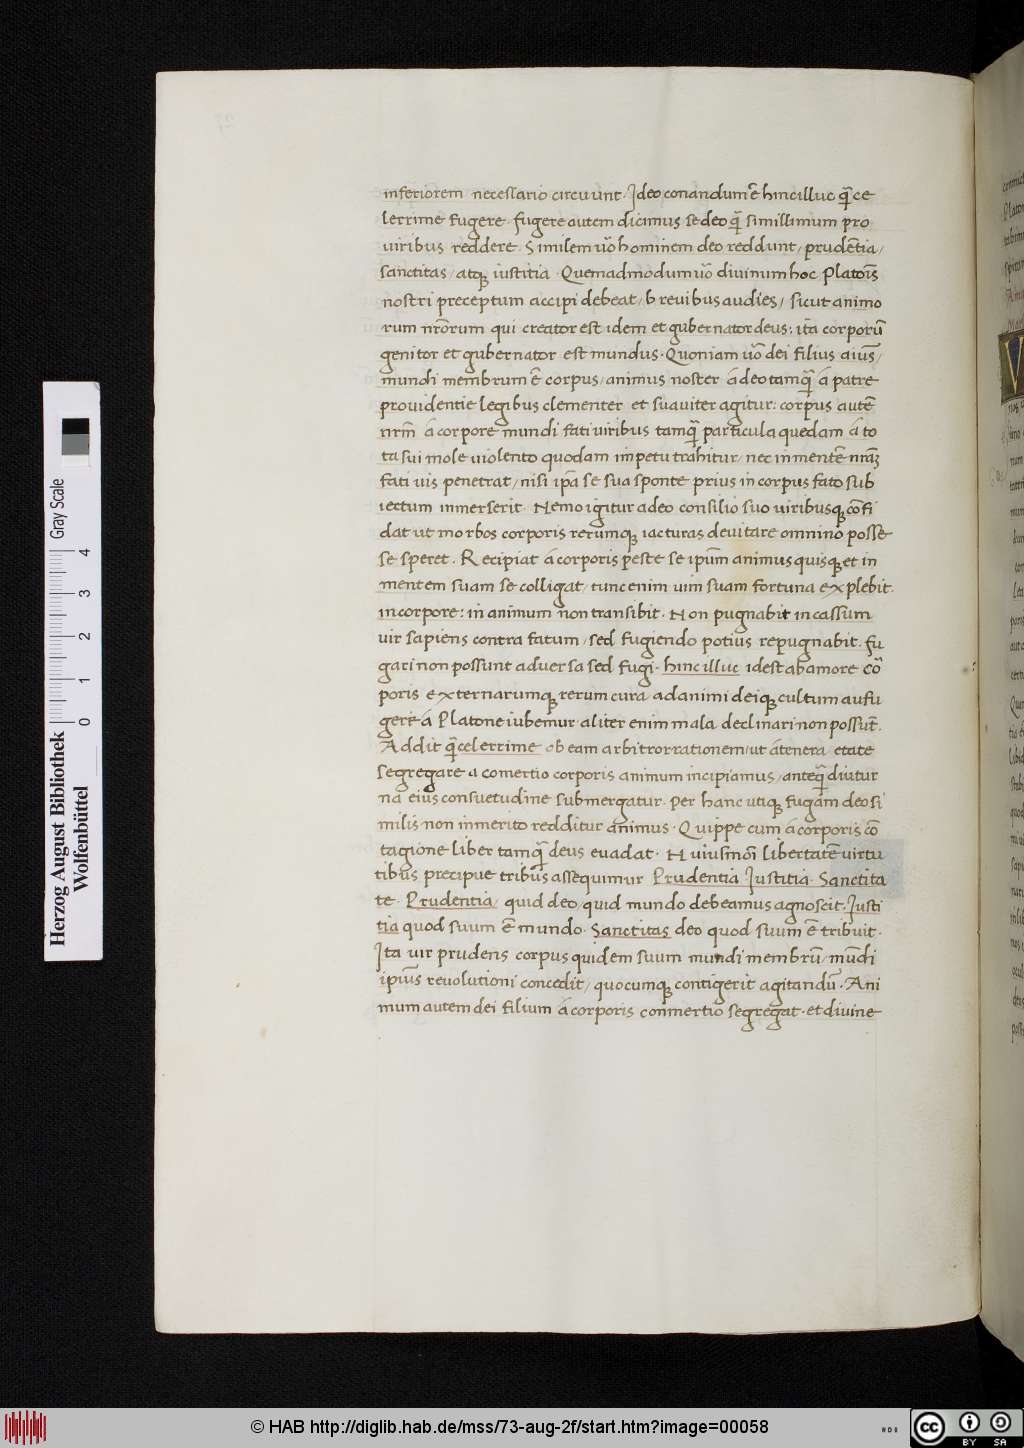 inferiorem necessario circuunt. Ideo conandum ē hinc illuc q̄ ce
lerrime fugere. fugere autem dicimus se deo q̄ simillimum pro
viribus reddere. Similem uo hominem deo reddunt, prudētia,
sanctitas, atq; iustitia. Quemadmodum uo divinum hoc Platoīs
nostri preceptum accipi debeat, brevibus audies, sicut animo
rum nrorum qui creator est idem et gubernator deus: ita corporū
genitor et gubernator est mundus. Quoniam uo dei filius aius,
mundi membrum ē corpus, animus noster á deo tamq̄ á patre
providentie legibus clementer et suaviter agitur: corpus autē
nrm á corpore mundi fati viribus tamq̄ particula quedam á to
ta sui mole violento quodam impetu trahitur, nec in mentē nrāz
fati vis penetrat, nisi ipa se sua sponte prius in corpus fato sub
iectum immerserit. Nemo igitur adeo consilio suo viribusq; cōfi
dat ut morbos corporis rerumq; iacturas devitare omnino posse
se speret. Recipiat á corporis peste se ipum animus quisq; et in
mentem suam se colligat, tunc enim uim suam fortuna explebit.
in corpore: in animum non transibit. Non pugnabit in cassum
vir sapiens contra fatum, sed fugiendo potius repugnabit. fu
gari non possunt adversa sed fugi. hinc illuc idest ab amore cō
poris externarumq; rerum cura ad animi deiq; cultum aufu
gere á Platone iubemur aliter enim mala declinari non possūt.
Addit q̄ celerrime ob eam arbitror rationem, ut á tenera etate
segregare a comertio corporis animum incipiamus, anteq̄ diutur
na eius consuetudine submergatur. Per hanc utiq; fugam deo si
milis non inmerito redditur animus. Quippe cum á corporis cō
tagione liber tamq̄ deus evadat. Nuiusmoi libertatē virtu
tibus precipue tribus assequimur Prudentia Iustitia. Sanctita
te. Prudentia, quid deo, quid mundo debeamus agnoscit. Iusti
tia quod suum ē mundo. Sanctitas deo quod suum ē tribuit.
Ita vir prudens corpus quidem suum mundi membrū, mūdi
ipius revolutioni concedit, quocumq; contigerit agitandū. Ani
mum autem dei filium á corporis conmertio segregat. et divine
Herzog August Bibliothek
Wolfenbüttel
0 1 2 3 4
Gray Scale
© HAB http://diglib.hab.de/mss/73-aug-2f/start.htm?image=00058
HAB
cc BY SA